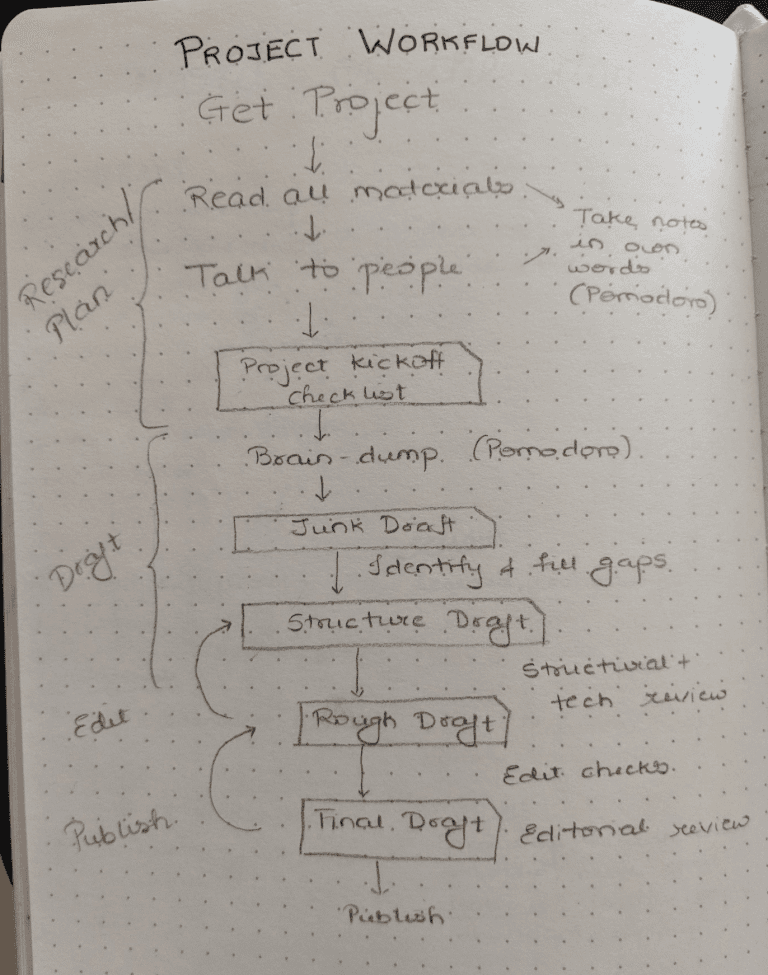 PROJECT WORKFLOW
Get Project
Read all materials
Take notes
in own
words
(Pomodoro)
Research/
Plan
Talk to people
Project kickoff
checklist
Brain-dump (Pomodoro)
Draft
Junk Draft
Identify & fill gaps
Structure Draft
Structural +
tech review
Edit
Rough Draft
Edit checks.
Publish
Final Draft
Editorial review
Publish